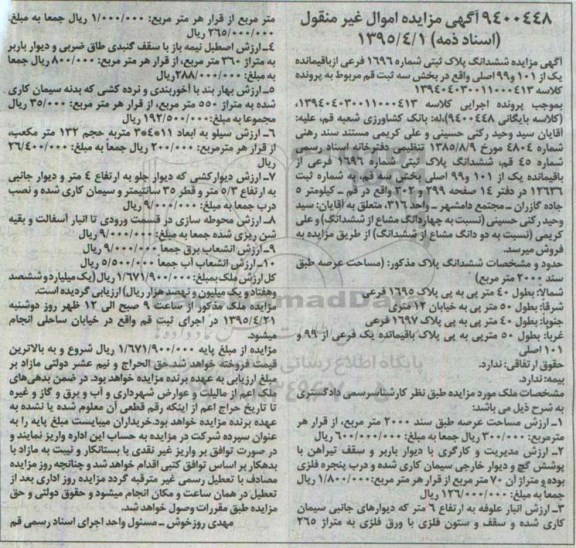 ۹۴۰۰۴۴۸ آگهی مزایده اموال غیر منقول
(اسناد ذمه) ۱۳۹۵/۴/۱
آگهی مزایده ششدانگ پلاک ثبتی شماره ۱۶۹۶ فرعی ازباقیمانده
یک از ۱۰۱ و۹۹ اصلی واقع در بخش سه ثبت قم مربوط به پرونده
کلاسه ۱۳۹۴۰۴۰۳۰۰۱۱۰۰۰۴۱۳
بموجب پرونده اجرایی کلاسه ۱۳۹۴۰۴۰۳۰۰۱۱۰۰۰۴۱۳،
(کلاسه بایگانی ۹۴۰۰۴۴۸)،له: بانک کشاورزی شعبه قم، علیه:
آقایان سید وحید رکنی حسینی و علی کریمی مستند سند رهنی
شماره ۴۸۰۴ مورخ ۱۳۸۵/۸/۹ تنظیمی دفترخانه اسناد رسمی
شماره ۴۵ قم، ششدانگ پلاک ثبتی شماره ۱۶۹۶ فرعی از
باقیمانده یک از ۱۰۱ و۹۹ اصلی بخش سه قم، به شماره ثبت
۱۲۶۳۶ در دفتر ۱۴ صفحه ۲۹۹ و ۳۰۲ واقع در قم ـ کیلومتر ۵
جاده گازران ـ مجتمع دامشهر ـ واحد ۳۱۶، متعلق به آقایان: سید
وحید رکنی حسینی (نسبت به چهاردانگ مشاع از ششدانگ) و علی
کریمی (نسبت به دو دانگ مشاع از ششدانگ) از طریق مزایده به
فروش میرسد.
حدود و مشخصات ششدانگ پلاک مذکور: (مساحت عرصه طبق
سند ۲۰۰۰ متر مربع)
شمالا: بطول ۴۰ متر پی به پی پلاک ۱۶۹۵ فرعی
شرقا: بطول ۵۰ متر پی به خیابان ۱۲ متری
جنوبا: بطول ۴۰ متر پی به پی پلاک ۱۶۹۷ فرعی
غربا: بطول ۵۰ متر پی به پی پلاک باقیمانده یک فرعی از ۹۹ و
۱۰۱ اصلی
حقوق ارتفاقی: ندارد.
بیمه: ندارد.
مشخصات ملک مورد مزایده طبق نظر کارشناسرسمی دادگستری
به شرح ذیل می باشد:
۱ـ ارزش مساحت عرصه طبق سند ۲۰۰۰ متر مربع، از قرار هر
مترمربع: ۳۰۰/۰۰۰ ریال جمعا به مبلغ: ۶۰۰/۰۰۰/۰۰۰ ریال
۲ـ ارزش مدیریت و کارگری با دیوار باربر و سقف تیرآهن با
پوشش گچ و دیوار خارجی سیمان کاری شده و درب پنجره فلزی
بوده و متراژ آن ۷۰ متر مربع از قرار هر متر مربع:۱/۸۰۰/۰۰۰ ریال
جمعا به مبلغ: ۱۲۶/۰۰۰/۰۰۰ ریال
۳ـ ارزش انبار علوفه به ارتفاع ۶ متر که دیوارهای جانبی سیمان
کاری شده و سقف و ستون فلزی با ورق فلزی به متراژ ۲۶۵
متر مربع از قرار هر متر مربع: ۱/۰۰۰/۰۰۰ ریال جمعا به مبلغ:
۲۶۵/۰۰۰/۰۰۰ ریال
۴ـ ارزش اصطبل نیمه باز با سقف گنبدی طاق ضربی و دیوار باربر
به متراژ ۳۶۰ متر مربع، از قرار هر متر مربع: ۸۰۰/۰۰۰ ریال جمعا
به مبلغ: ۲۸۸/۰۰۰/۰۰۰ریال
۵ـ ارزش بهار بند با آخوربندی و نرده کشی که بدنه سیمان کاری
شده به متراژ ۵۵۰ متر مربع، از قرار هر متر مربع: ۳۵/۰۰۰ ریال
مجموعا به مبلغ: ۱۹۲/۵۰۰/۰۰۰ ریال
۶ـ ارزش سیلو به ابعاد ۱۱*۴*۳۵ متربه حجم ۱۳۲ متر مکعب،
از قرار هر مترمربع: ۲۰۰/۰۰۰ ریال جمعا به مبلغ: ۲۶/۴۰۰/۰۰۰
ریال
۷ـ ارزش دیوارکشی که دیوار جلو به ارتفاع ۴ متر و دیوار جانبی
به ارتفاع ۵/۳ متر و قطر ۳۵ سانتیمتر و سیمان کاری شده و نصب
درب جمعا به مبلغ: ۹/۰۰۰/۰۰۰ ریال
۸ـ ارزش محوطه سازی در قسمت ورودی تا انبار آسفالت و بقیه
شن ریزی شده جمعا به مبلغ: ۹/۰۰۰/۰۰۰ ریال
۹ـ ارزش انشعاب برق جمعا ۹/۰۰۰/۰۰۰ ریال
۱۰ـ ارزش انشعاب آب جمعا ۵/۵۰۰/۰۰۰ ریال
کل ارزش ملک بمبلغ: ۱/۶۷۱/۹۰۰/۰۰۰ ریال (یک میلیارد و ششصد
وهفتاد و یک میلیون و نهصد هزار ریال) ارزیابی گردیده است.
مزایده ملک مذکور از ساعت ۹ صبح الی ۱۲ ظهر روز دوشنبه
۱۳۹۵/۴/۲۱ در اجرای ثبت قم واقع در خیابان ساحلی انجام
میشود.
مزایده از مبلغ پایه ۱/۶۷۱/۹۰۰/۰۰۰ ریال شروع و به بالاترین
قیمت فروخته خواهد شد.حق الحراج و نیم عشر دولتی مازاد بر
مبلغ ارزیابی به عهده برنده مزایده خواهد بود. در ضمن بدهی‌های
ملک اعم از مالیات و عوارض شهرداری و آب و برق و گاز و غیره
تا تاریخ حراج اعم از اینکه رقم قطعی آن معلوم شده یا نشده به
عهده برنده مزایده خواهد بود.خریداران میبایست مبلغ پایه را به
عنوان سپرده شرکت در مزایده به حساب این اداره واریز نمایند و
در صورت توافق بر واریز غیر نقدی یا بستانکار و نیبت به مازاد با
بدهکار بر اساس توافق کتبی اقدام خواهد شد و چنانچه روز مزایده
مصادف با تعطیل رسمی غیر مترقبه گردد مزایده روز اداری بعد از
تعطیل در همان ساعت و مکان انجام میشود و حقوق دولتی و حق
مزایده طبق مقررات وصول خواهد شد.
مهدی روزخوش ـ مسئول واحد اجرای اسناد رسمی قم